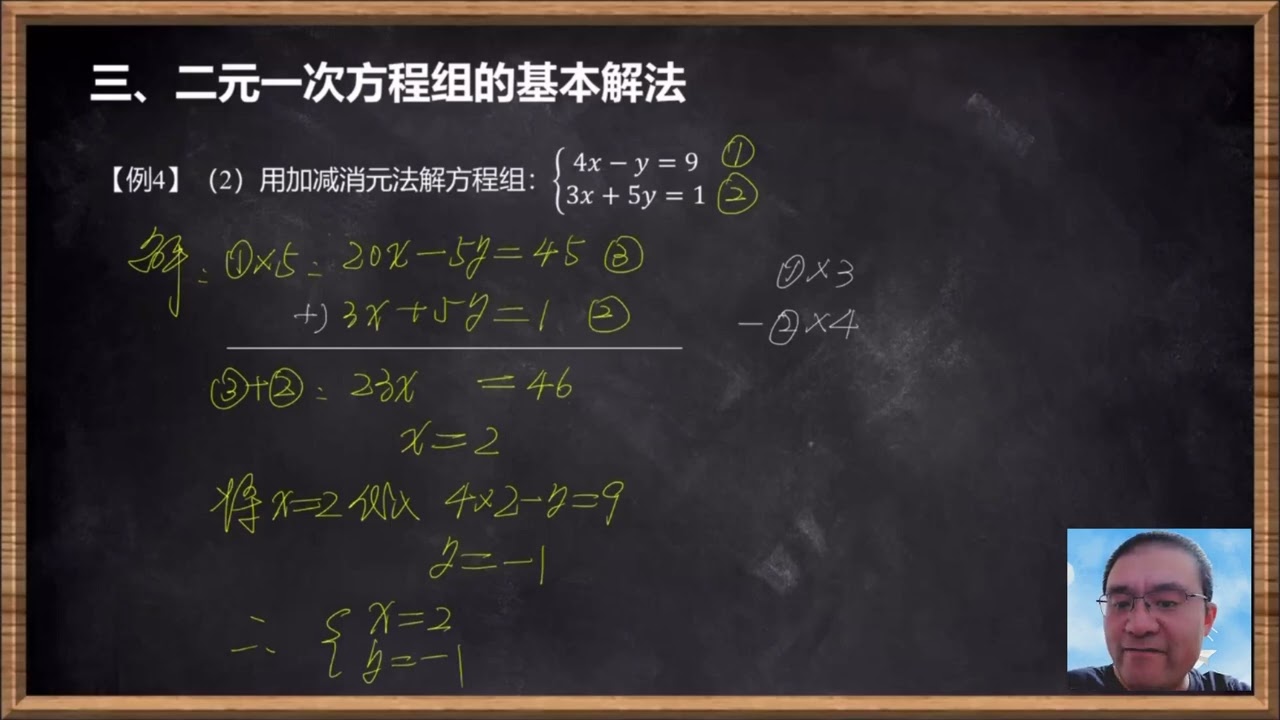 三、二元一次方程组的基本解法
【例4】（2）用加减消元法解方程组：{4x − y = 9 ①
3x + 5y = 1 ②
解：①×5：20x−5y=45 ③
+) 3x+5y=1 ②
③+②：23x =46
x=2
将x=2代入 4×2−y=9
y=−1
∴ {x=2
y=−1
①×3
−②×4